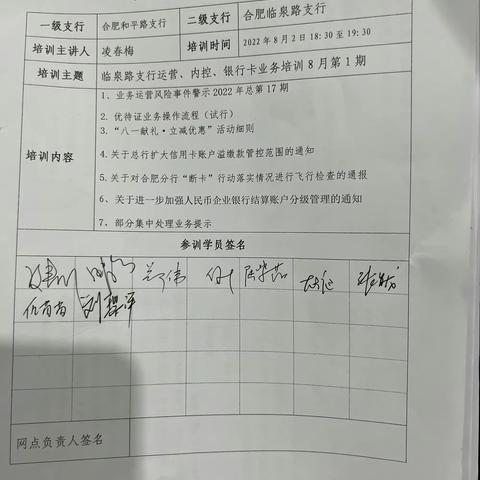 一级支行 合肥和平路支行 二级支行 合肥临泉路支行
培训主讲人 凌春梅 培训时间 2022年8月2日18:30至19:30
培训主题 临泉路支行运营、内控、银行卡业务培训8月第1期
培训内容
1、业务运营风险事件警示2022年总第17期
2、优待证业务操作流程（试行）
3、“八一献礼·立减优惠”活动细则
4、关于总行扩大信用卡账户溢缴款管控范围的通知
5、关于对合肥分行“断卡”行动落实情况进行飞行检查的通报
6、关于进一步加强人民币企业银行结算账户分级管理的通知
7、部分集中处理业务提示
参训学员签名
网点负责人签名